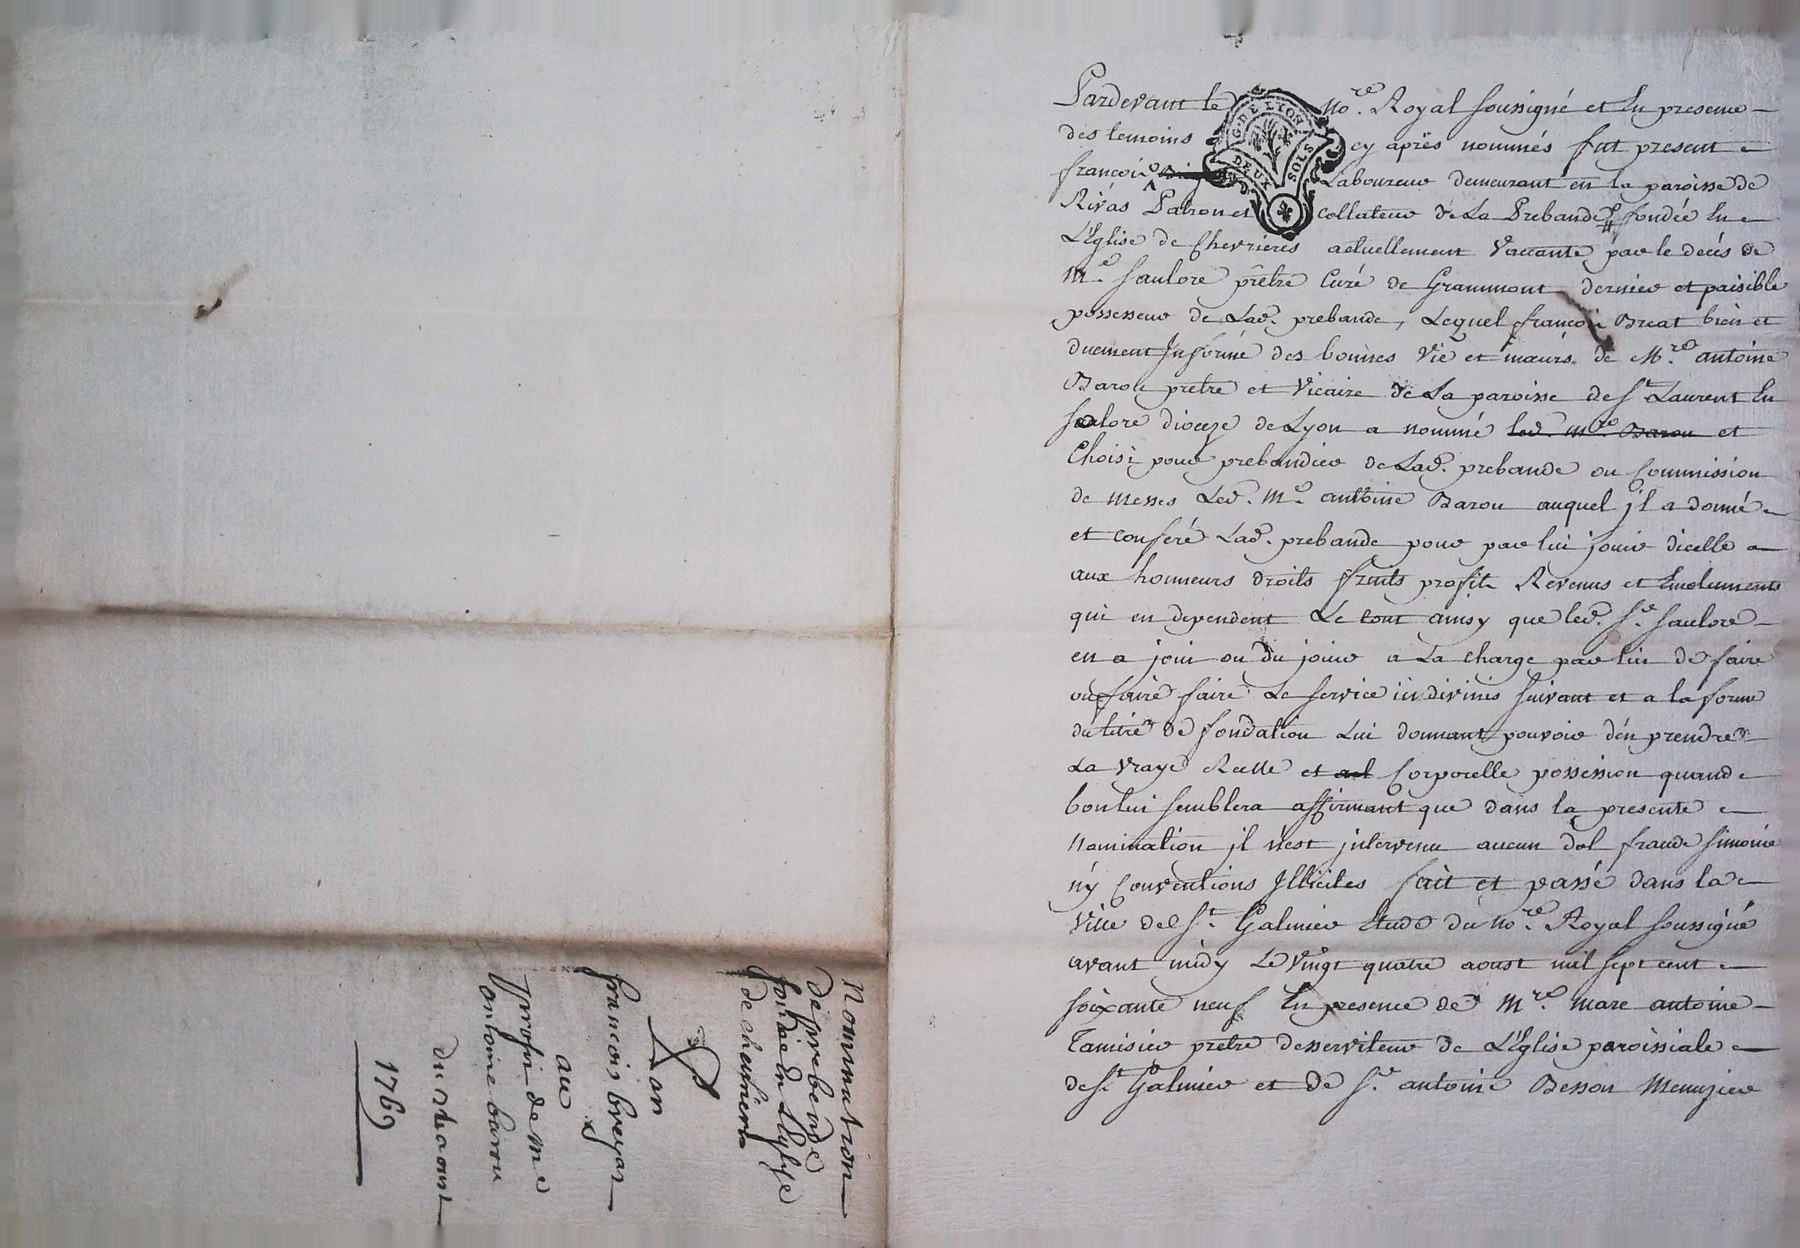 Pardevant le no.re Royal soussigné et En presence
des temoins cy après nommés fut present
françois Laboureur demeurant en la paroisse de
Rivas Patron et collateur de La Prebande fondée En
L'Eglise de Chevrieres actuellement Vaccante par le decés de
M.e Saulore prêtre Curé de Grammont dernier et paisible
possesseur de Lad. prebande, Lequel françois Breat bien et
duement Informé des bonnes Vie et mœurs de M.re antoine
Barou prêtre et Vicaire de La paroisse de St Laurent En
Solore dioceze de Lyon a nommé led. m.re Barou et
Choisi pour prebandier de Lad. prebande ou Commission
de messes Led. M.e antoine Barou auquel jl a donné
et conferé Lad. prebande pour par lui jouir dicelle
aux honneurs droits fruits profits Revenus et Emoluments
qui en dependent Le tout ainsy que led. S.r Saulore
en a joui ou du jouir a La charge par lui de faire
ou faire faire Le service in divinis suivant et a la forme
du titre de fondation Lui donnant pouvoir d'en prendre
La vraye Reelle et Corporelle possession quand
bon lui semblera affirmant que dans la presente
Nomination jl n'est jntervenu aucun dol fraude simonie
ny Conventions Illicites fait et passé dans la
Ville de St. Galmier Etude du no.re Royal soussigné
avant midy Le Vingt quatre aoust mil sept cent
soixante neuf En presence de M.re Marc antoine
Tamisier prêtre desserviteur de L'Eglise paroissiale
de St Galmier et de S.r antoine Besson Menuzier
G. DE LYON
DEUX SOLS
Nomination
de prebende
fondée En L'eglise
de chevriere
par
francois breyat
au
profit de Me
antoine barou
du 24 aoust
1769